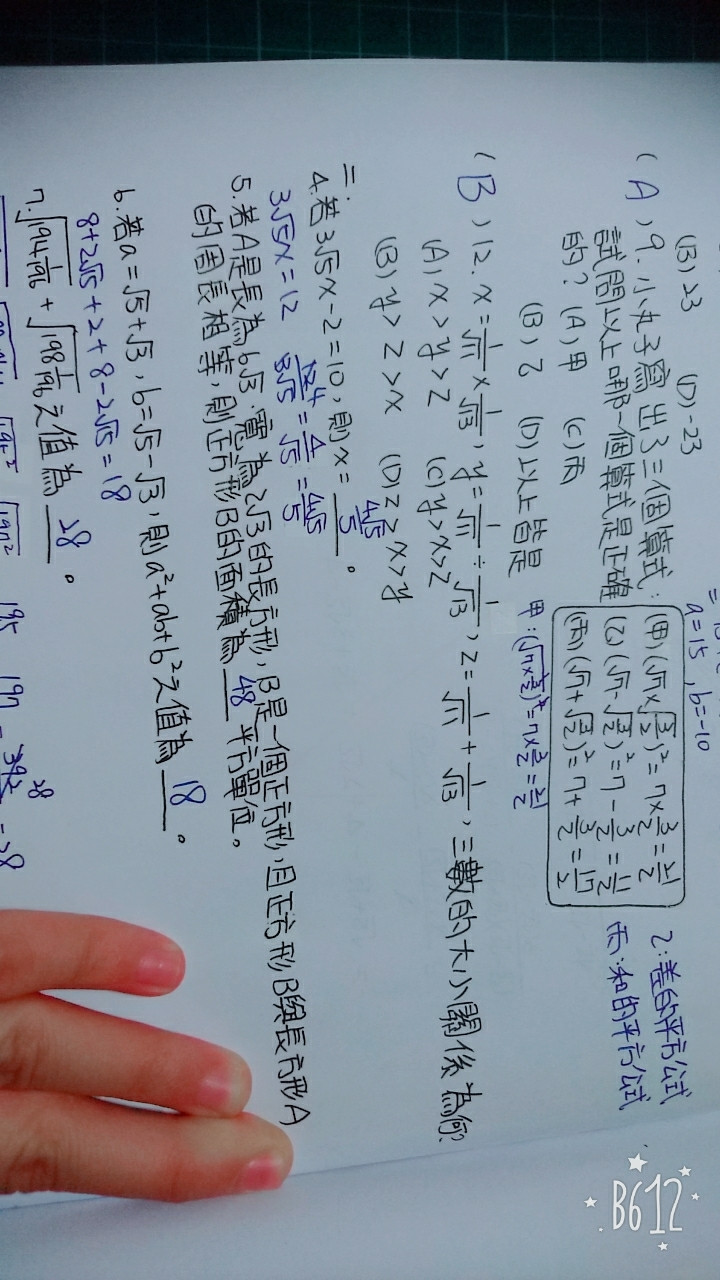 (B) 23 (D) -23
a=15, b=-10
(A) 9. 小丸子寫出了三個算式:
試問以上哪一個算式是正確
的? (A) 甲 (C) 丙
(B) 乙 (D) 以上皆是
(甲) (√7×√3/2)²=7×3/2=21/2
(乙) (√7-√3/2)²=7-3/2=11/2
(丙) (√7+√3/2)²=7+3/2=17/2
乙:差的平方公式
丙:和的平方公式
甲:(√7×3/2)²=7×3/2=21/2
(B) 12. x=1/√11×1/√13, y=1/√11÷1/√13, z=1/√11+1/√13, 三數的大小關係為何?
(A) x>y>z (C) y>x>z
(B) y>z>x (D) z>x>y
二.
4. 若3√5x-2=10, 則x=4√5/5。
3√5x=12 12 4/3√5=4/√5=4√5/5
5. 若A是長為6√3, 寬為2√3的長方形, B是一個正方形, 且正方形B與長方形A
的周長相等, 則正方形B的面積為48平方單位。
6. 若a=√5+√3, b=√5-√3, 則a²+ab+b²之值為18。
8+2√15+2+8-2√15=18
之值為28。
B612